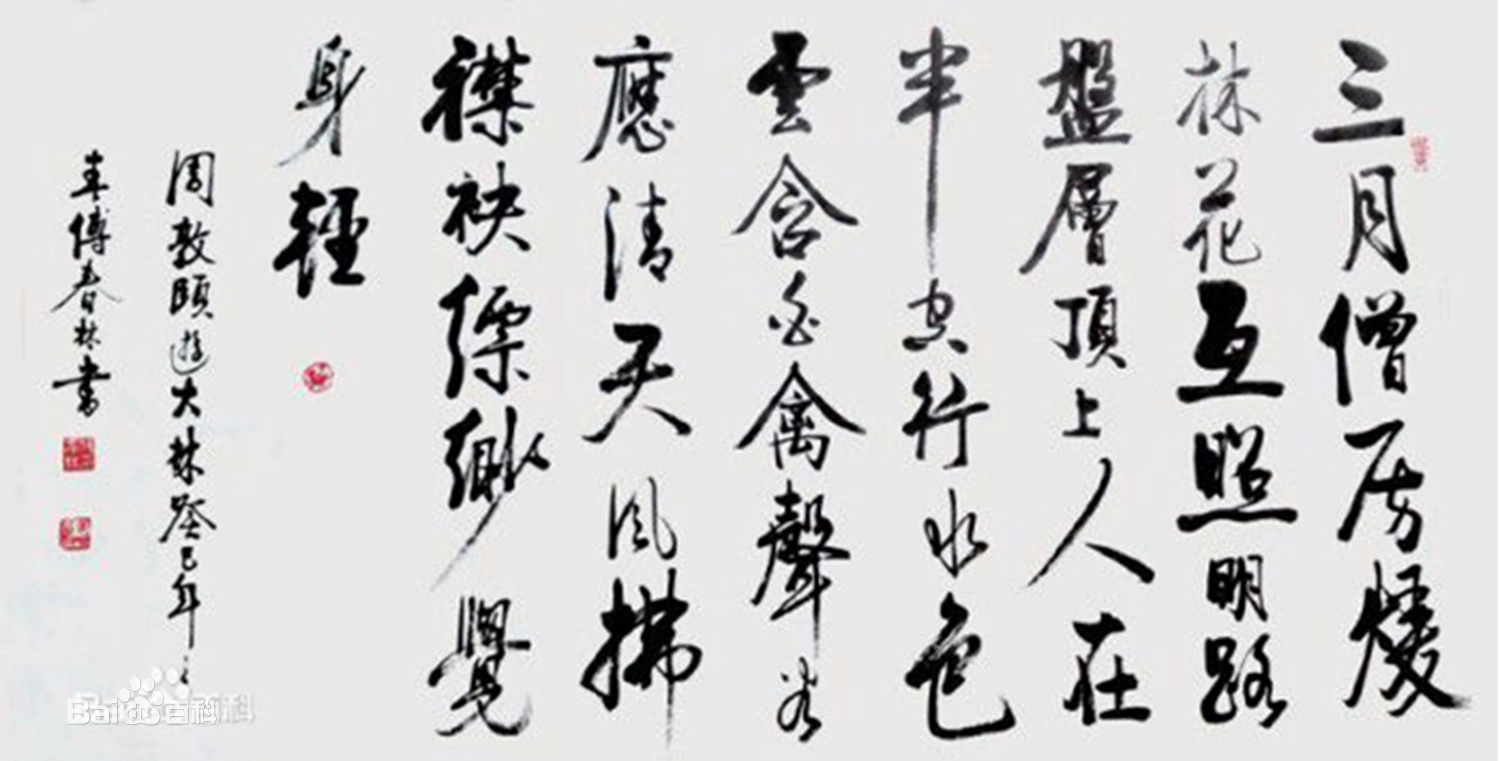 三月僧房煖
林花互照明路
盤層頂上人在
半空行水色
雲含白禽聲谷
應清天風拂
襟袂縹緲覺
身輕
周敦頤遊大林癸巳年之
傅春林書
Baidu百科